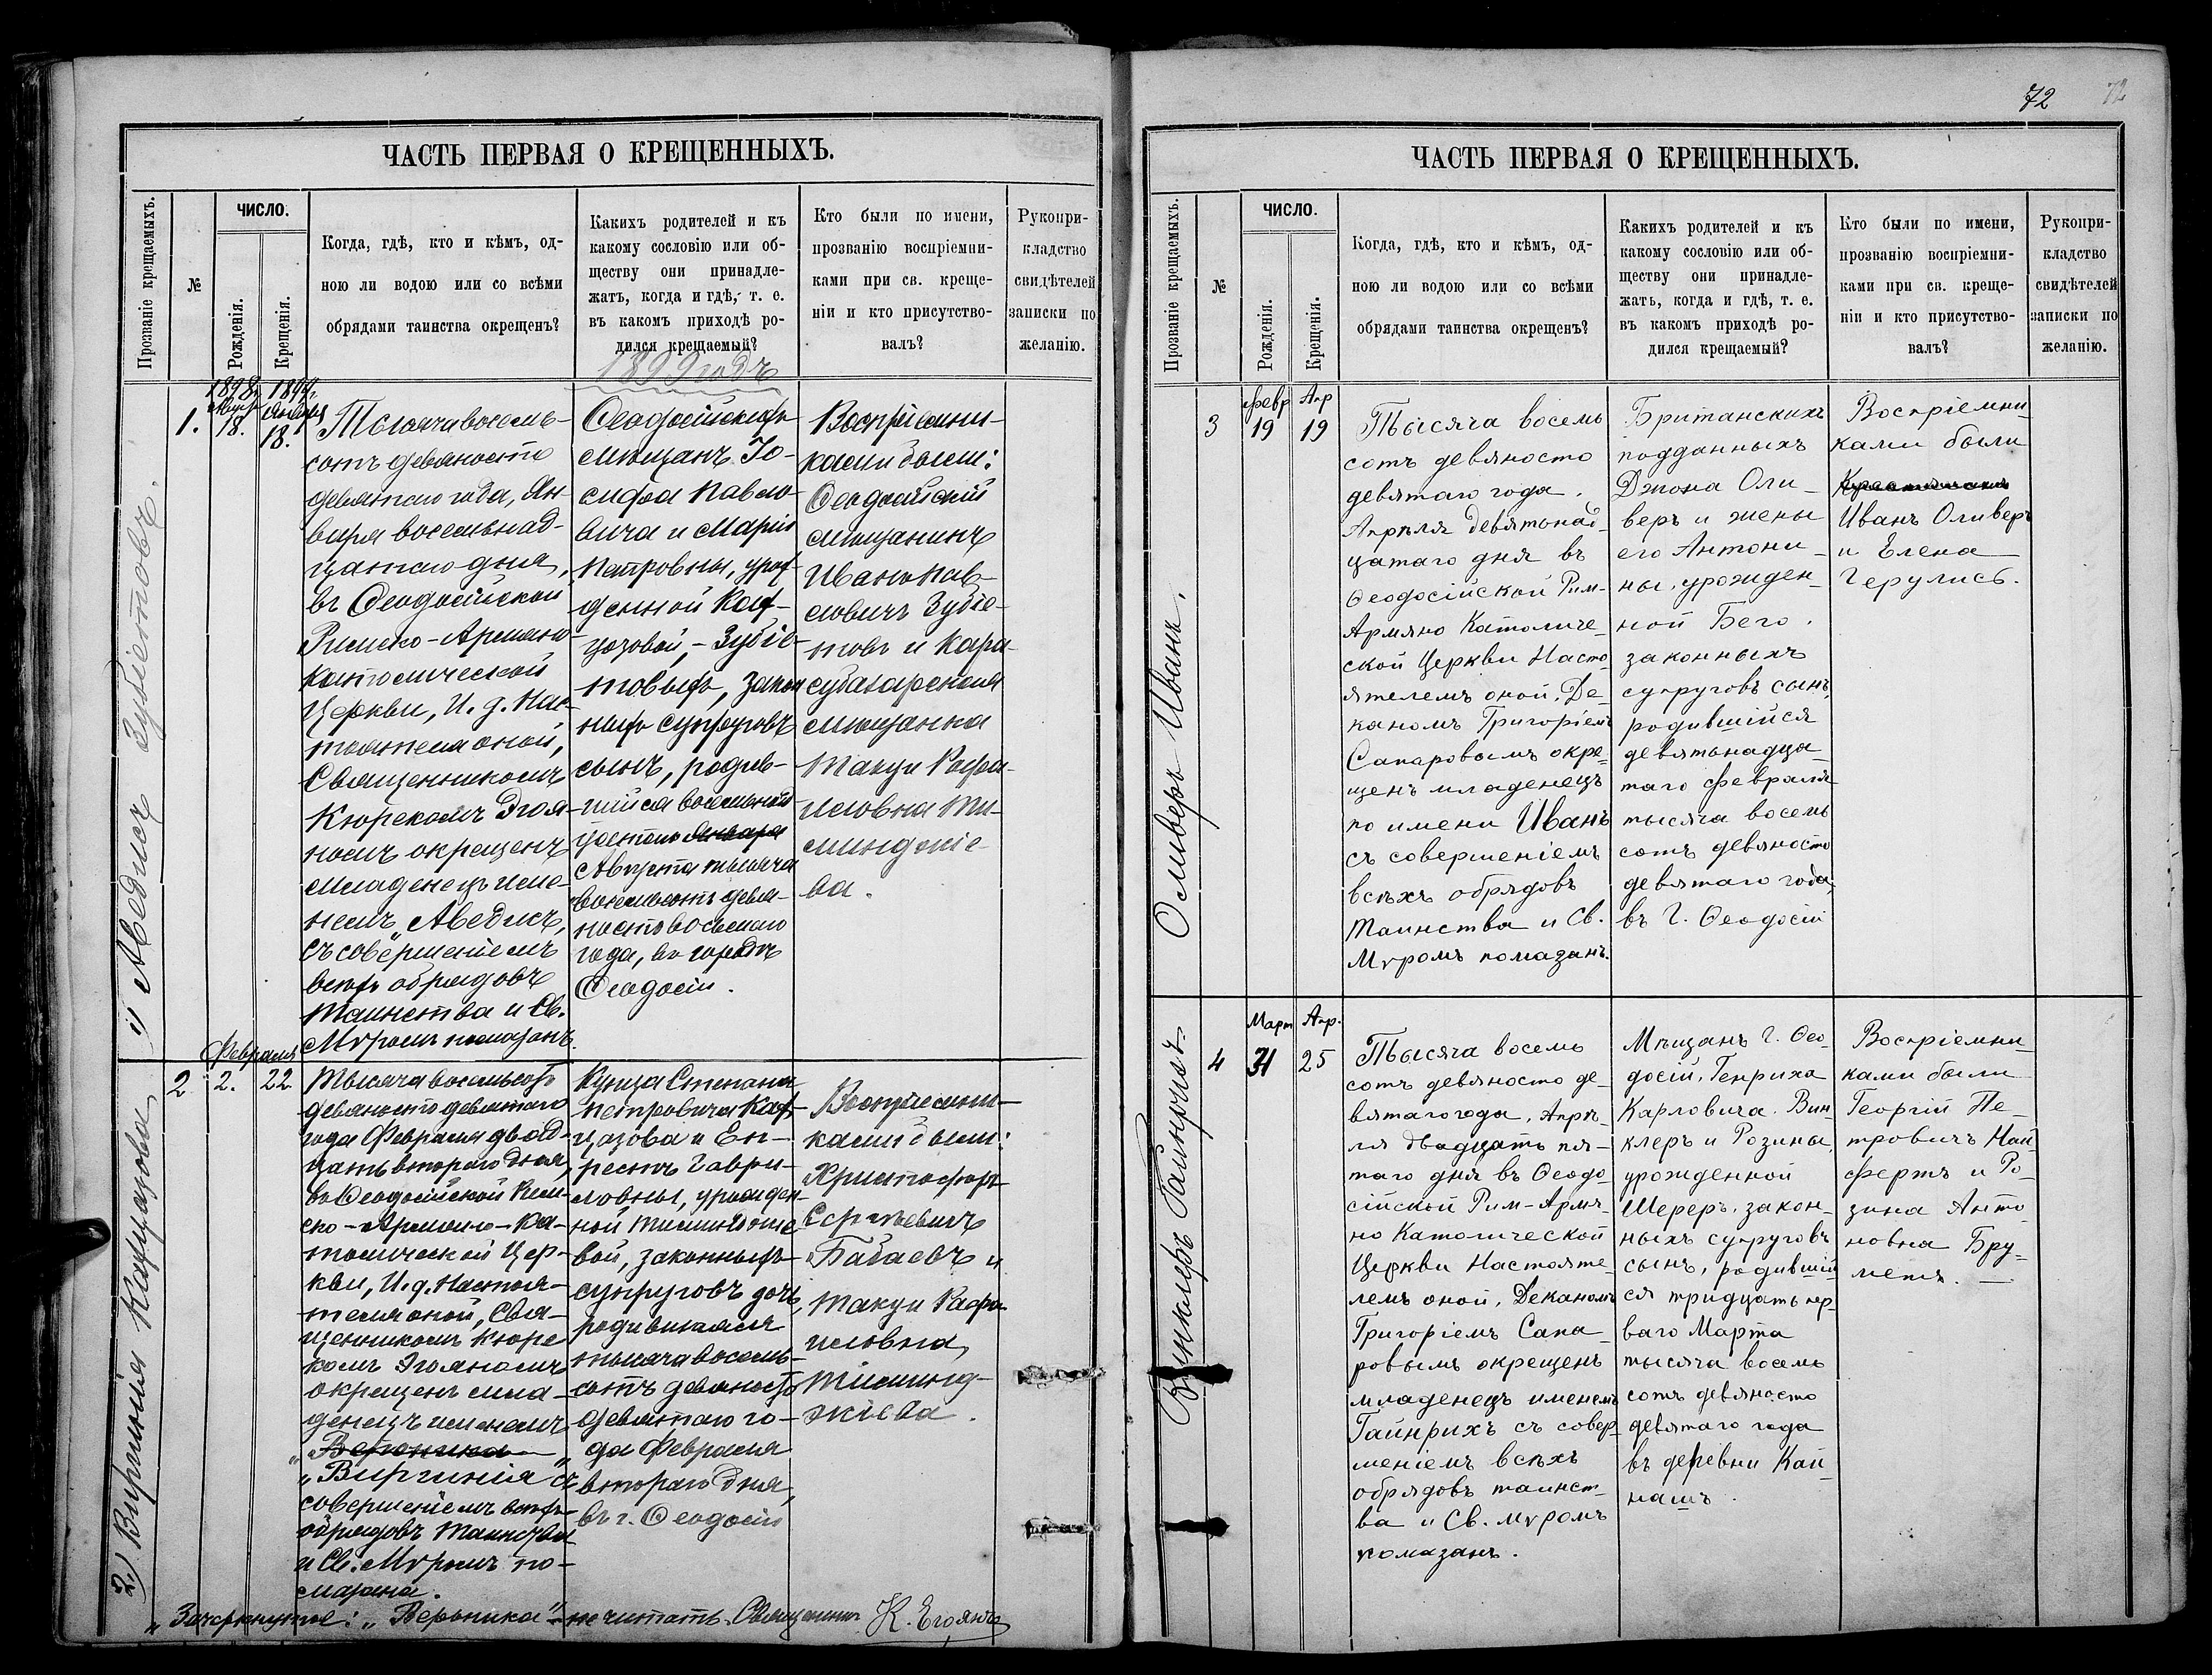 72
72
ЧАСТЬ ПЕРВАЯ О КРЕЩЕННЫХЪ.
Прозваніе крещаемыхъ.
№
ЧИСЛО.
Рожденія.
Крещенія.
Когда, гдѣ, кто и кѣмъ, од-
ною ли водою или со всѣми
обрядами таинства окрещенъ?
Какихъ родителей и къ
какому сословію или об-
ществу они принадле-
жатъ, когда и гдѣ, т. е.
въ какомъ приходѣ ро-
дился крещаемый?
Кто были по имени,
прозванію воспріемни-
ками при св. креще-
ніи и кто присутство-
валъ?
Рукопри-
кладство
свидѣтелей
записки по
желанію.
1899 годъ
1) Аведисъ Зубіетовъ.
1.
1898.
18.
1899.
Января
18.
Тысяча восемь-
сотъ девяносто
девятаго года, Ян-
варя восемьнад-
цатаго дня,
въ Ѳеодосійской
Римско-Армяно-
католической
Церкви, И. д. Нас-
тоятеля оной,
Священникомъ
Кюрекомъ Эгоя-
номъ окрещенъ
младенецъ име-
немъ „Аведисъ,
съ совершеніемъ
всѣхъ обрядовъ
Таинства и Св.
Мѵромъ помазанъ.
Ѳеодосійскихъ
мѣщанъ Іо-
сифа Павло-
вича и Маріи
Петровны, урож-
денной Каф-
цозовой, - Зубіе-
товыхъ, закон
ныхъ супруговъ
сынъ, родив-
шійся восемьнад
цатаго Января
Августа тысяча
восемьсотъ девя-
носто восьмаго
года, въ городѣ
Ѳеодосіи.
Воспріемни-
ками были:
Ѳеодосійскій
мѣщанинъ
Иванъ Пав-
ловичъ Зубіе-
товъ и Кара-
субазарская
мѣщанка
Такуи Рафа-
иловна Ти-
минджіе-
ва.
Февраля
2.) Виргинія Кафцазова
2
2.
22.
Тысяча восемьсотъ
девяносто девятаго
года Февраля двад-
цать втораго дня,
въ Ѳеодосійской Рим-
ско-Армяно-Ка-
толической Цер-
кви, И.д. Настоя-
теля оной, Свя-
щенникомъ Кюре-
комъ Эгояномъ
окрещенъ мла-
денецъ именемъ
„Вероника„
„Виргинія съ
совершеніемъ всѣхъ
обрядовъ Таинства
и Св. Мѵромъ по-
мазана.
Купца Степана
Петровича Каф-
цазова и Еп-
ресть Гаври-
ловны, урожден-
ной Тиминджіе-
вой, законныхъ
супруговъ дочь,
родившаяся
тысяча восемь-
сотъ девяносто
девятаго го-
да Февраля
втораго дня,
въ г. Ѳеодосіи
Воспріемни-
ками были:
Христофоръ
Сергѣевичъ
Бабаевъ и
Такуи Рафа
иловна
Тиминд-
жіева.
„Зачеркнутое: „Вероника" не читать. Священникъ К. Егоянъ
ЧАСТЬ ПЕРВАЯ О КРЕЩЕННЫХЪ.
Прозваніе крещаемыхъ.
№
ЧИСЛО.
Рожденія.
Крещенія.
Когда, гдѣ, кто и кѣмъ, од-
ною ли водою или со всѣми
обрядами таинства окрещенъ?
Какихъ родителей и къ
какому сословію или об-
ществу они принадле-
жатъ, когда и гдѣ, т. е.
въ какомъ приходѣ ро-
дился крещаемый?
Кто были по имени,
прозванію воспріемни-
ками при св. креще-
ніи и кто присутство-
валъ?
Рукопри-
кладство
свидѣтелей
записки по
желанію.
Оливеръ Иванъ.
3
Февр
19
Апр
19
Тысяча восемь
сотъ девяносто
девятаго года.
Апрѣля девятьнад-
цатаго дня въ
Ѳеодосійской Рим-
Армяно Католиче-
ской Церкви Насто-
ятелемъ оной, Де-
каномъ Григоріемъ
Сапаровымъ окре-
щенъ младенецъ
по имени Иванъ
съ совершеніемъ
всѣхъ обрядовъ
Таинства и Св.
Мѵромъ помазанъ.
Британскихъ
подданныхъ
Джона Оли-
веръ и жены
его Антони-
ны, урожден-
ной Бего.
законныхъ
супруговъ сынъ,
родившійся
девятьнадца-
таго февраля
тысяча восемь
сотъ девяносто
девятаго года,
въ Г. Ѳеодосіи
Воспріемни-
ками были
Иванъ Оливеръ
и Елена
Герулисъ.
Винклеръ Гайнрихъ
4
Март
31
Апр.
25
Тысяча восемь
сотъ девяносто де-
вятаго года, Апрѣ-
ля двадцать пя-
таго дня въ Ѳеодо-
сійской Рим-Армя-
но Католической
Церкви Настояте-
лемъ оной, Деканомъ
Григоріемъ Сапа-
ровымъ окрещенъ
младенецъ именемъ
Гайнрихъ съ совер-
шеніемъ всѣхъ
обрядовъ таинст-
ва и Св. мѵромъ
помазанъ.
Мѣщанъ Г. Ѳео-
досіи, Генриха
Карловича Вин-
клеръ и Розины,
урожденной
Шереръ, закон-
ныхъ супруговъ
сынъ, родившій
ся тридцать пер-
ваго Марта
тысяча восемь
сотъ девяносто
девятаго года
въ деревни Кай-
нашъ.
Воспріемни-
ками были
Георгій Пе-
тровичъ Най-
фертъ и Ро-
зина Анто-
новна Бру-
метъ.